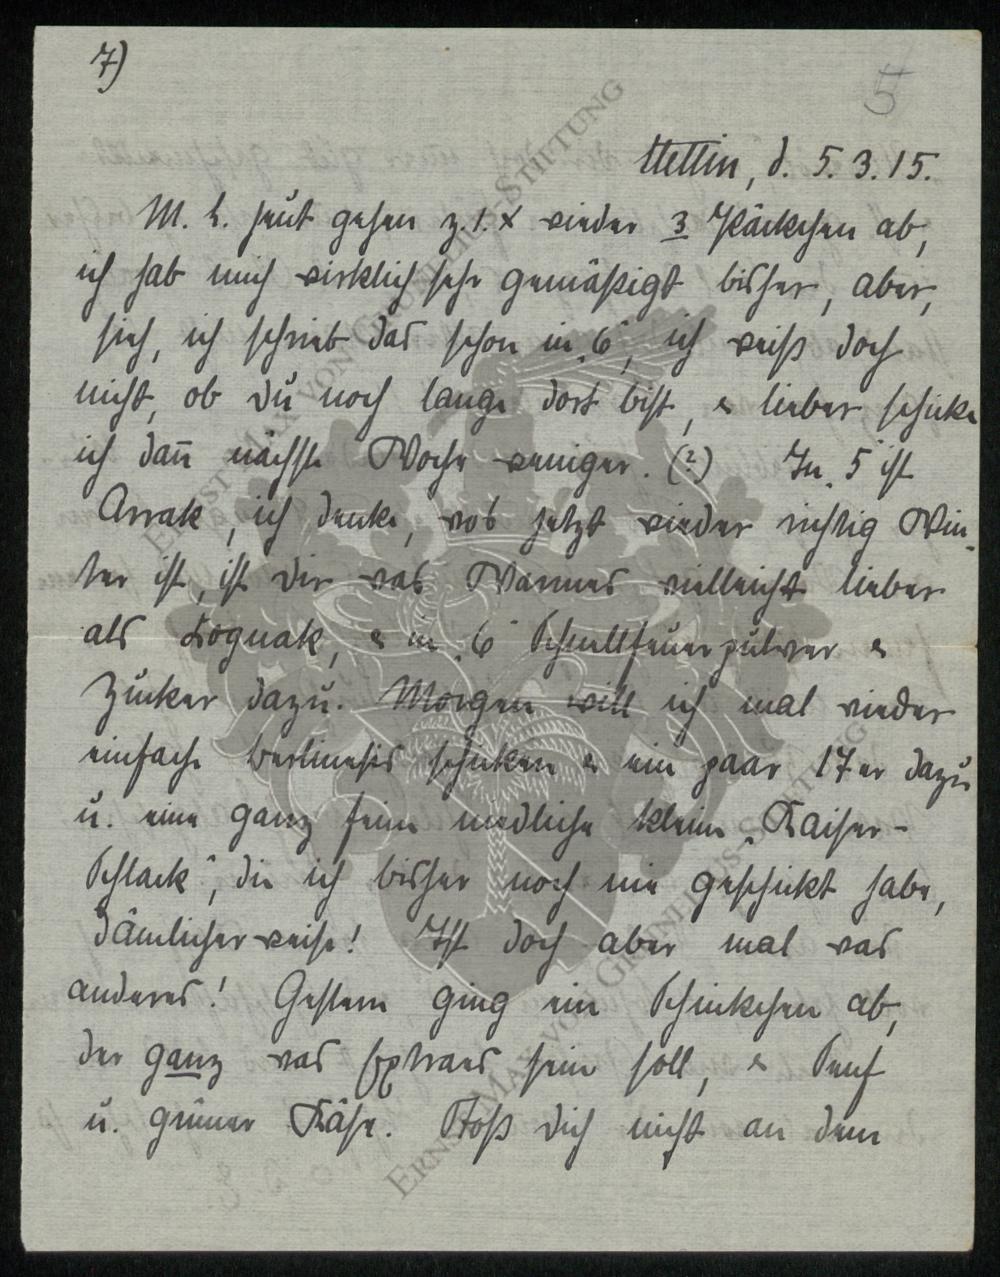 7)
5
Stettin, d. 5.3.15.
M. L. heut gehen z. 1. x wieder 3 Päckchen ab,
ich hab mich wirklich sehr gemäßigt bisher, aber,
sieh, ich schrieb das schon in „6“, ich weiß doch
nicht, ob Du noch lange dort bist, & lieber schicke
ich dann nächste Woche weniger. (?) In „5“ ist
Arrak, ich denke, wos jetzt wieder richtig Win-
ter ist, ist Dir was Warmes vielleicht lieber
als Kognak, & in „6“ Schnellfeuerpulver &
Zucker dazu. Morgen will ich mal wieder
einfach schicken & ein paar 17er dazu
u. eine ganz feine niedliche kleine „Kaiser-
Schlack“, die ich bisher noch nie geschickt habe,
dämlicherweise! Ist doch aber mal was
anderes! Gestern ging ein Schinkchen ab,
der ganz was Extraes sein soll, & Senf
u. grüner Käse. Stoß Dich nicht an dem
ERNST MAX VON GRUNELIUS-STIFTUNG
ERNST MAX VON GRUNELIUS-STIFTUNG